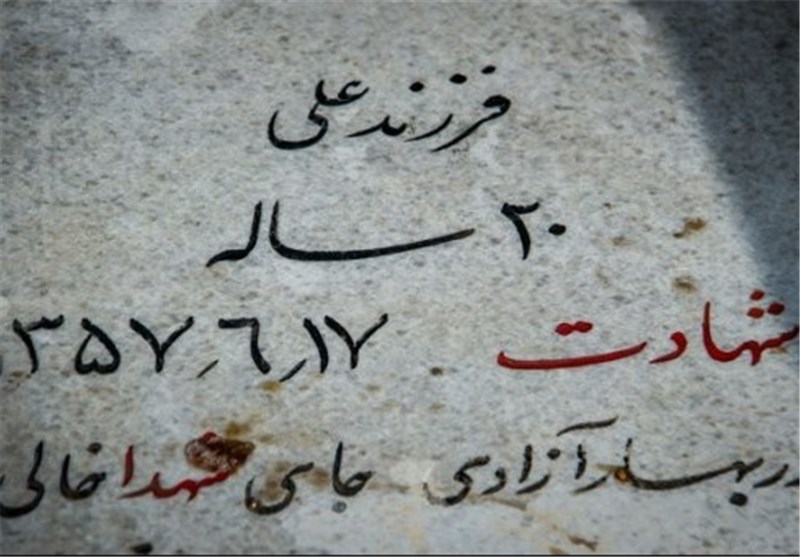 فرزند علی
۲۰ ساله
شهادت ۱۳۵۷٫۶٫۱۷
در بهار آزادی جای شهدا خالی